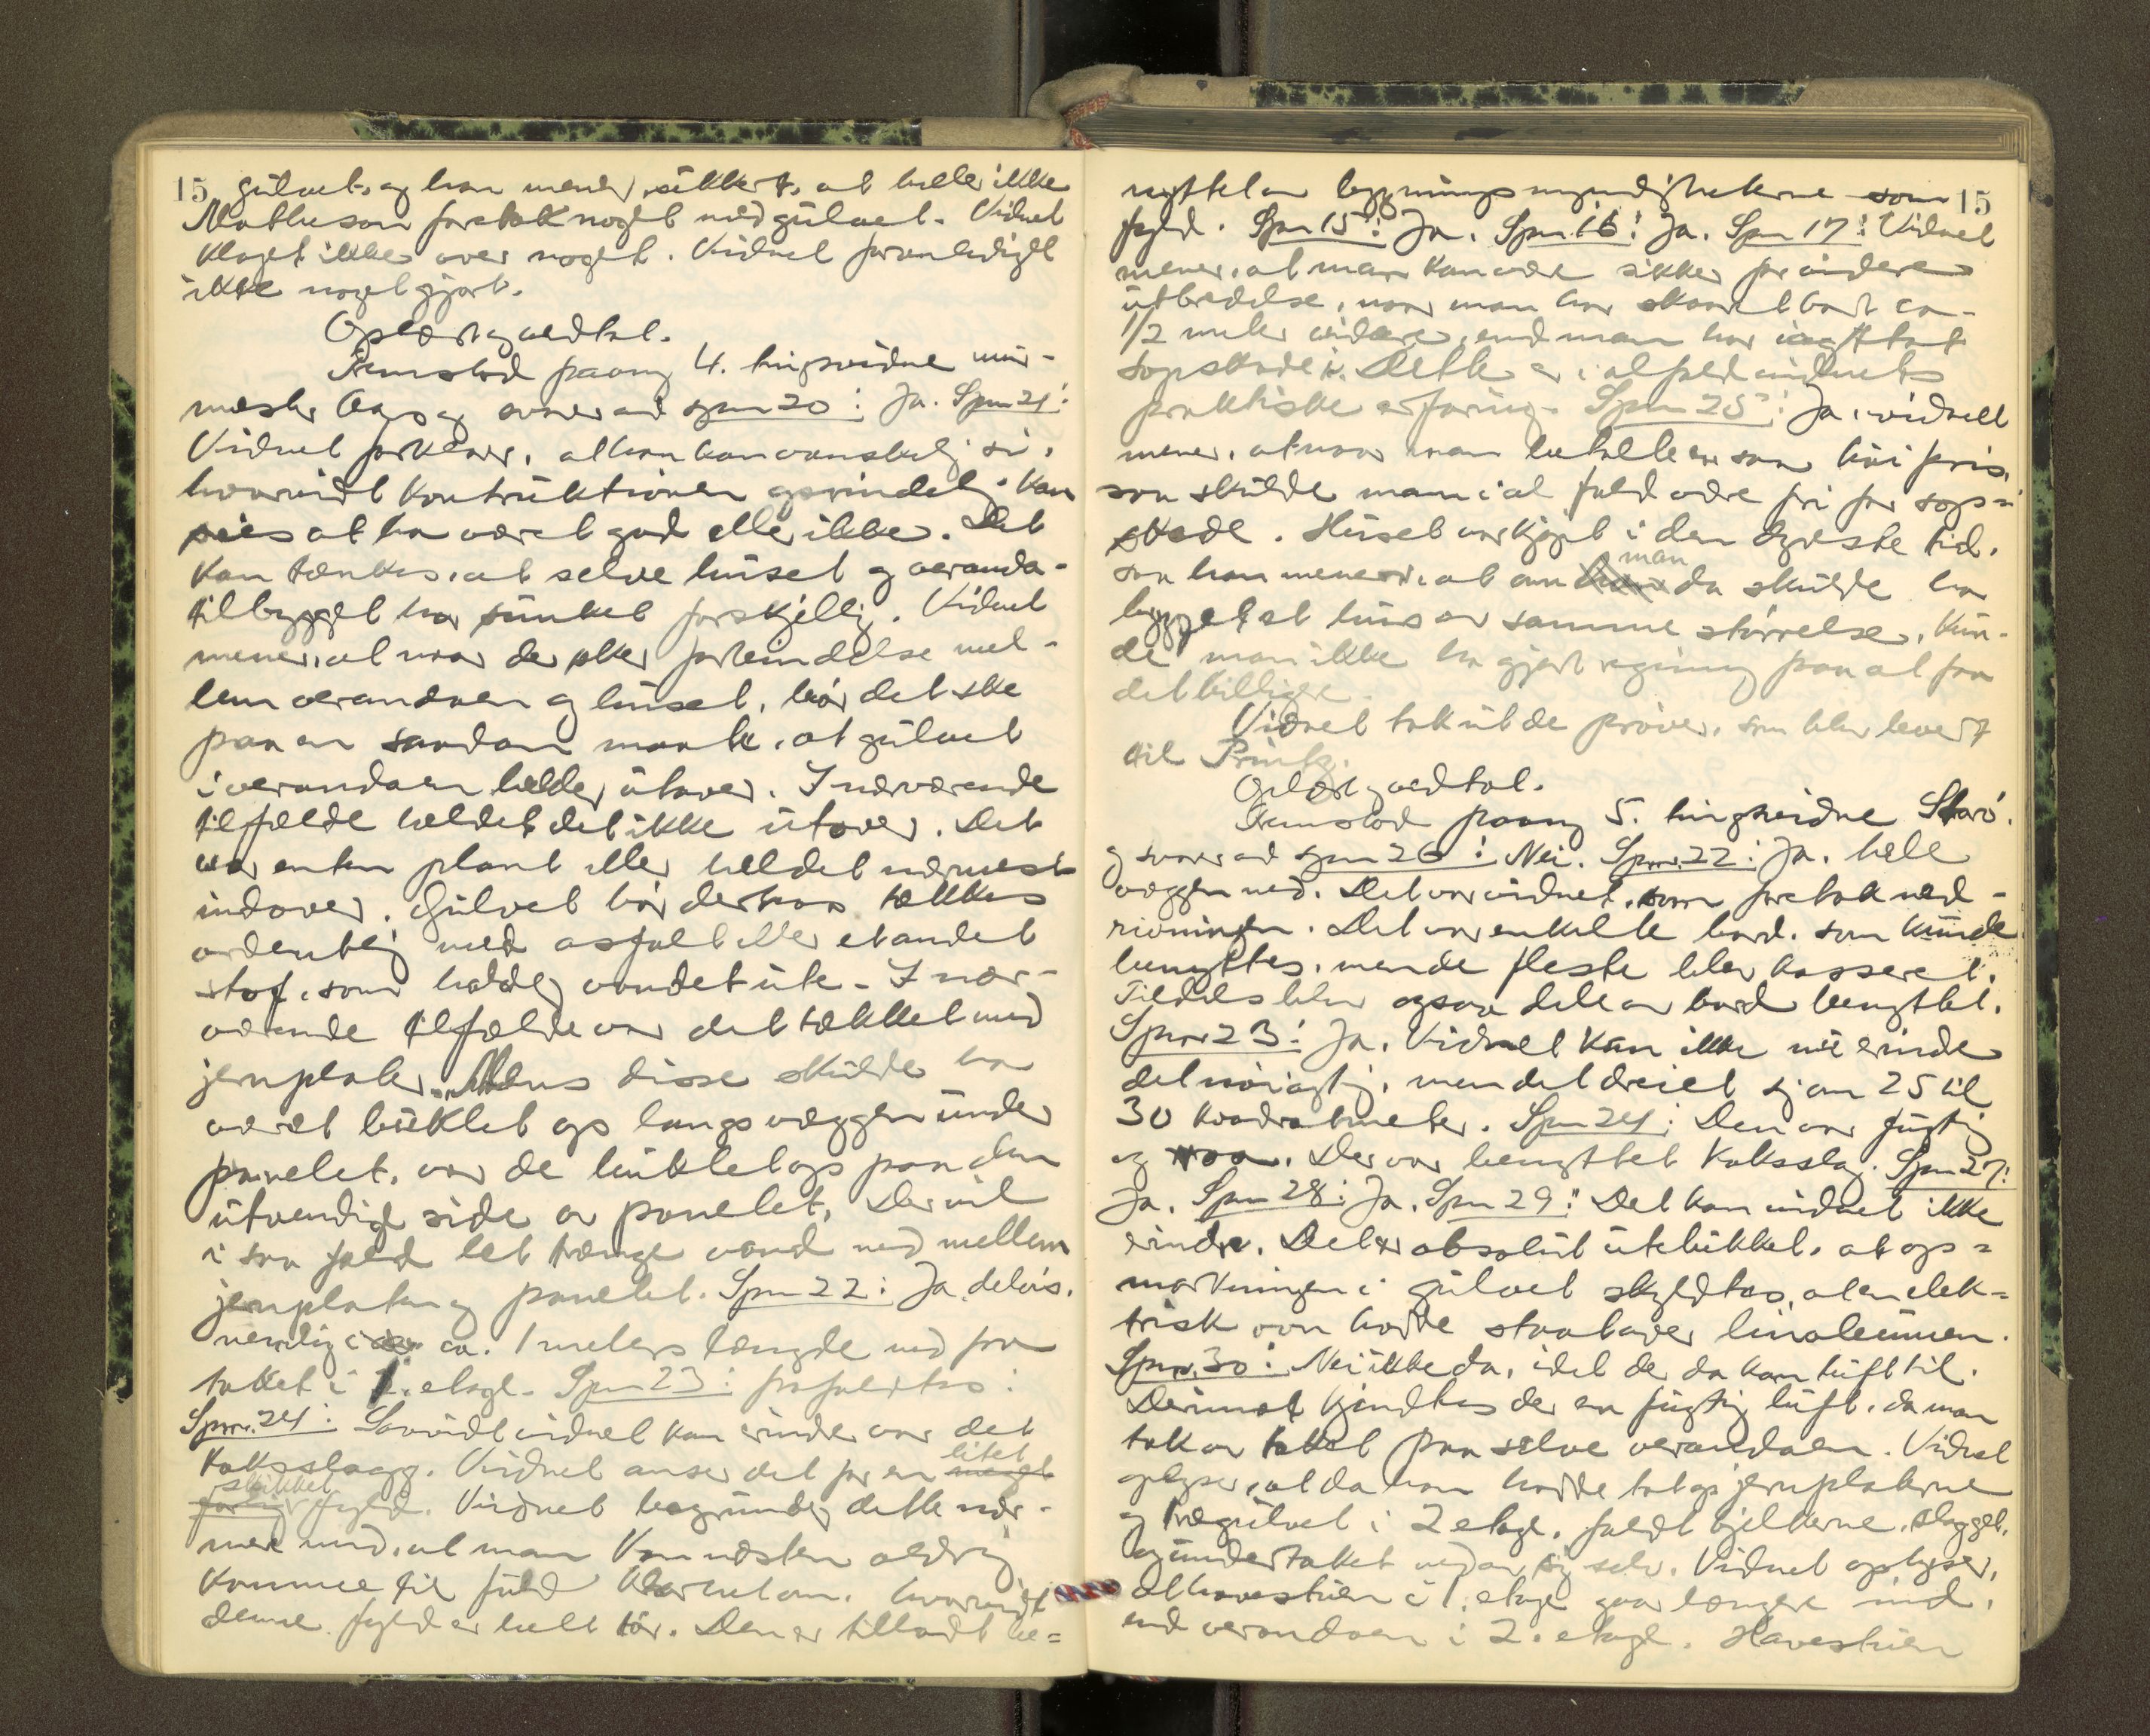 15 gulvet, og han mener sikkert, at heller ikke
Mathieson foretok noget med gulvet. Vidnet
klaget ikke over noget. Vidnet foranledigedt
ikke noget gjort.
Oplæst og vedtat.
Fremstod paany 4. tingsvidne mur-
mester Aas og svarer ad spm 20: Ja. Spm 21:
Vidnet forklarer, at han kan vanskelig si,
hvorvidt konstruktionen oprindelig kan
sies at ha været god eller ikke. Det
kan tænkes, at selve huset og veranda-
tilbygget har sunket forskjellig. Vidnet
mener, at naar der sker forbindelse mel-
lem verandaen og huset, bør det ske
paa en saadan maate, at gulvet
i verandaen helder utover. I nærværende
tilfælde heldet det ikke utover. Det
var enten plant eller heldet nærmest
indover. Gulvet bør derhos tækkes
ordentlig med asfalt eller et andet
stof, som holder vandet ute. I nær-
værende tilfælde var det tækket med
jernplater. Mens disse skulde ha
været bukket op langs væggen under
panelet, var de bukket op paa den
utvendige side av panelet. Der vil
i saa fald let trænge vand ned mellem
jernplaten og panelet. Spm 22: Ja, delvis,
nemlig i ca. 1 meters længde ned fra
taket i 1. etage. Spm 23: frafaldtes:
Spm. 24: Saavidt vidnet kan erindre var det
koksslagg. Vidnet anser det for en litet meget
skikket farlig fyld. Vidnet begrunder dette nær-
mere med, at man kan næsten aldrig
komme til fuld klarhet om, hvorvidt
denne fyld er helt tør. Den er tilladt be=
nyttet av bygningsmyndigheterne som 15
fyld. Spm 15: Ja. Spm 16: Ja. Spm 17: Vidnet
mener, at man kan være sikker for videre
utbredelse, naar man har skaaret bort ca.
1/2 meter videre, end man har iagttat
sopskade i. Dette er i al fald vidnets
praktiske erfaring. Spm 25: Ja, vidnet
mener, at naar man betalte en saa høi pris,
saa skulde man i al fald være fri for sop=
skade. Huset var kjøpt i den dyreste tid,
saa han mener, at om man da skulde ha
bygget et hus av samme størrelse, kun-
de man ikke ha gjort regning paa at faa
det billigere.
Vidnet tok ut de prøver, som blev levert
til Printz.
Oplæst og vedtat.
Fremstod paany 5. tingsvidne Starö.
og svarer ad spm 20: Nei. Spm. 22: Ja, hele
væggen ned. Det var vidnet, som foretok ned-
rivningen. Det var enkelte bord, som kunde
benyttes, men de fleste blev kasseret.
Tildels blev ogsaa dele av bord benyttet.
Spm. 23: Ja. Vidnet kan ikke nu erindre
det nøiagtig, men det dreiet sig om 25 til
30 kvadratmeter. Spm 24: Den var fugtig
og raa. Der var benyttet koksslag. Spm 27:
Ja. Spm 28: Ja. Spm 29: Det kan vidnet ikke
erindre. Det er absolut utelukket, at op=
markningen i gulvet skyldtes, at en elek=
trisk ovn hadde staat over linoleumen.
Spm. 30: Nei ikke da, idet der da kom luft til.
Derimot kjendtes der en fugtig luft, da man
tok av taket paa selve verandaen. Vidnet
oplyser, at da han hadde tat op jernplaterne
og trægulvet i 2 etage, faldt bjelkerne, slagget,
og undertaket ned av sig selv. Vidnet oplyser,
at havestuen i 1. etage gaar længere ind,
end verandaen i 2. etage. Havestuen